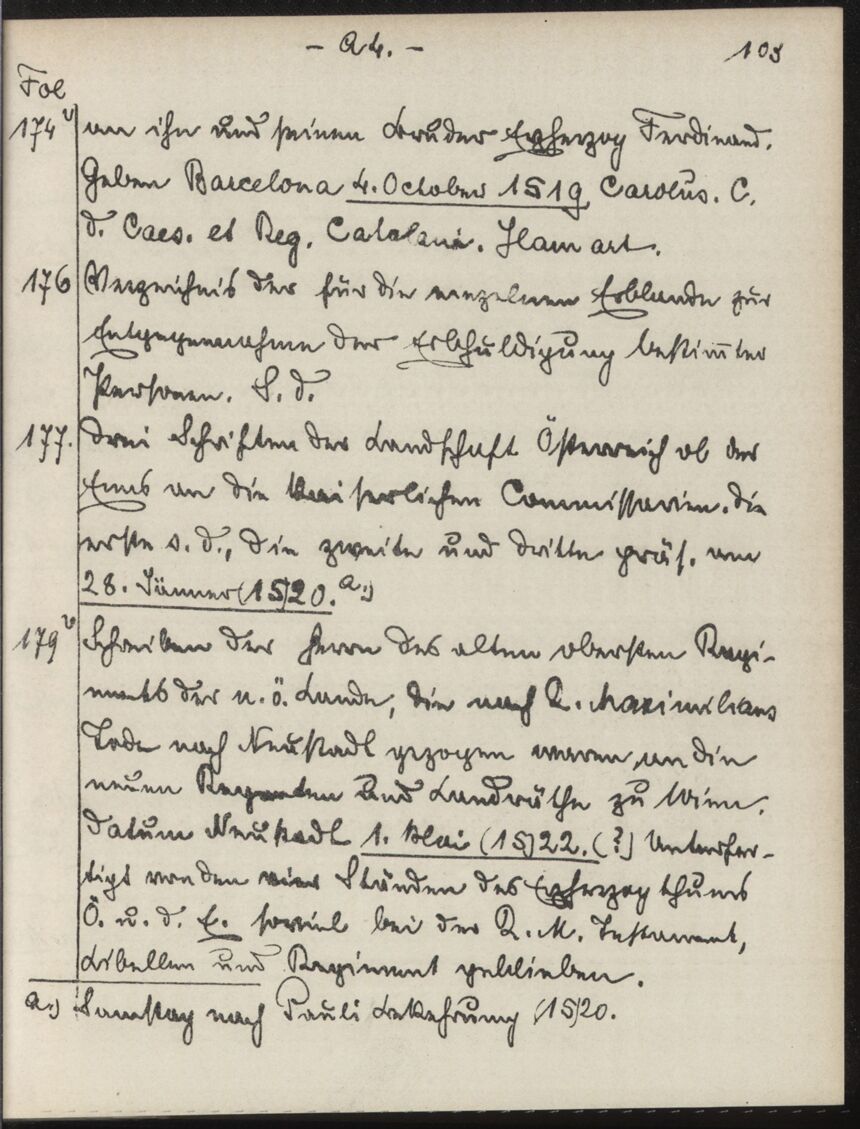 - A 4. - 103
Fol
174v an ihn und seinen Bruder Erzherzog Ferdinand.
Geben Barcelona 4. October 1519 Carolus. C.
d. Caes. et Reg. Catolani. Hanart.
176 Verzeichnis der für die einzelnen Erblande zur
Entgegennahme der Erbhuldigung bestim̅ter
Personen. S. d.
177. Drei Schriften der Landschaft Österreich ob der
Enns an die kaiserlichen Commissarien. Die
erste s. d., die zweite und dritte präs. am
28. Jänner (15)20. a.)
179v Schreiben der Herrn des alten obersten Regi-
ments der n. ö. Lande, die nach K. Maximilians
Tode nach Neustadt gezogen waren, an die
neuen Regenten und Landräthe zu Wien.
Datum Neustadt 1. Mai (15)22. (?) Unterfer-
tigt von den vier Ständen des Erzherzogthums
Ö. u. d. E. soviel bei der K. M. Testament,
Libellen und Regiment geblieben.
a.) Samstag nach Pauli Bekehrung (15)20.